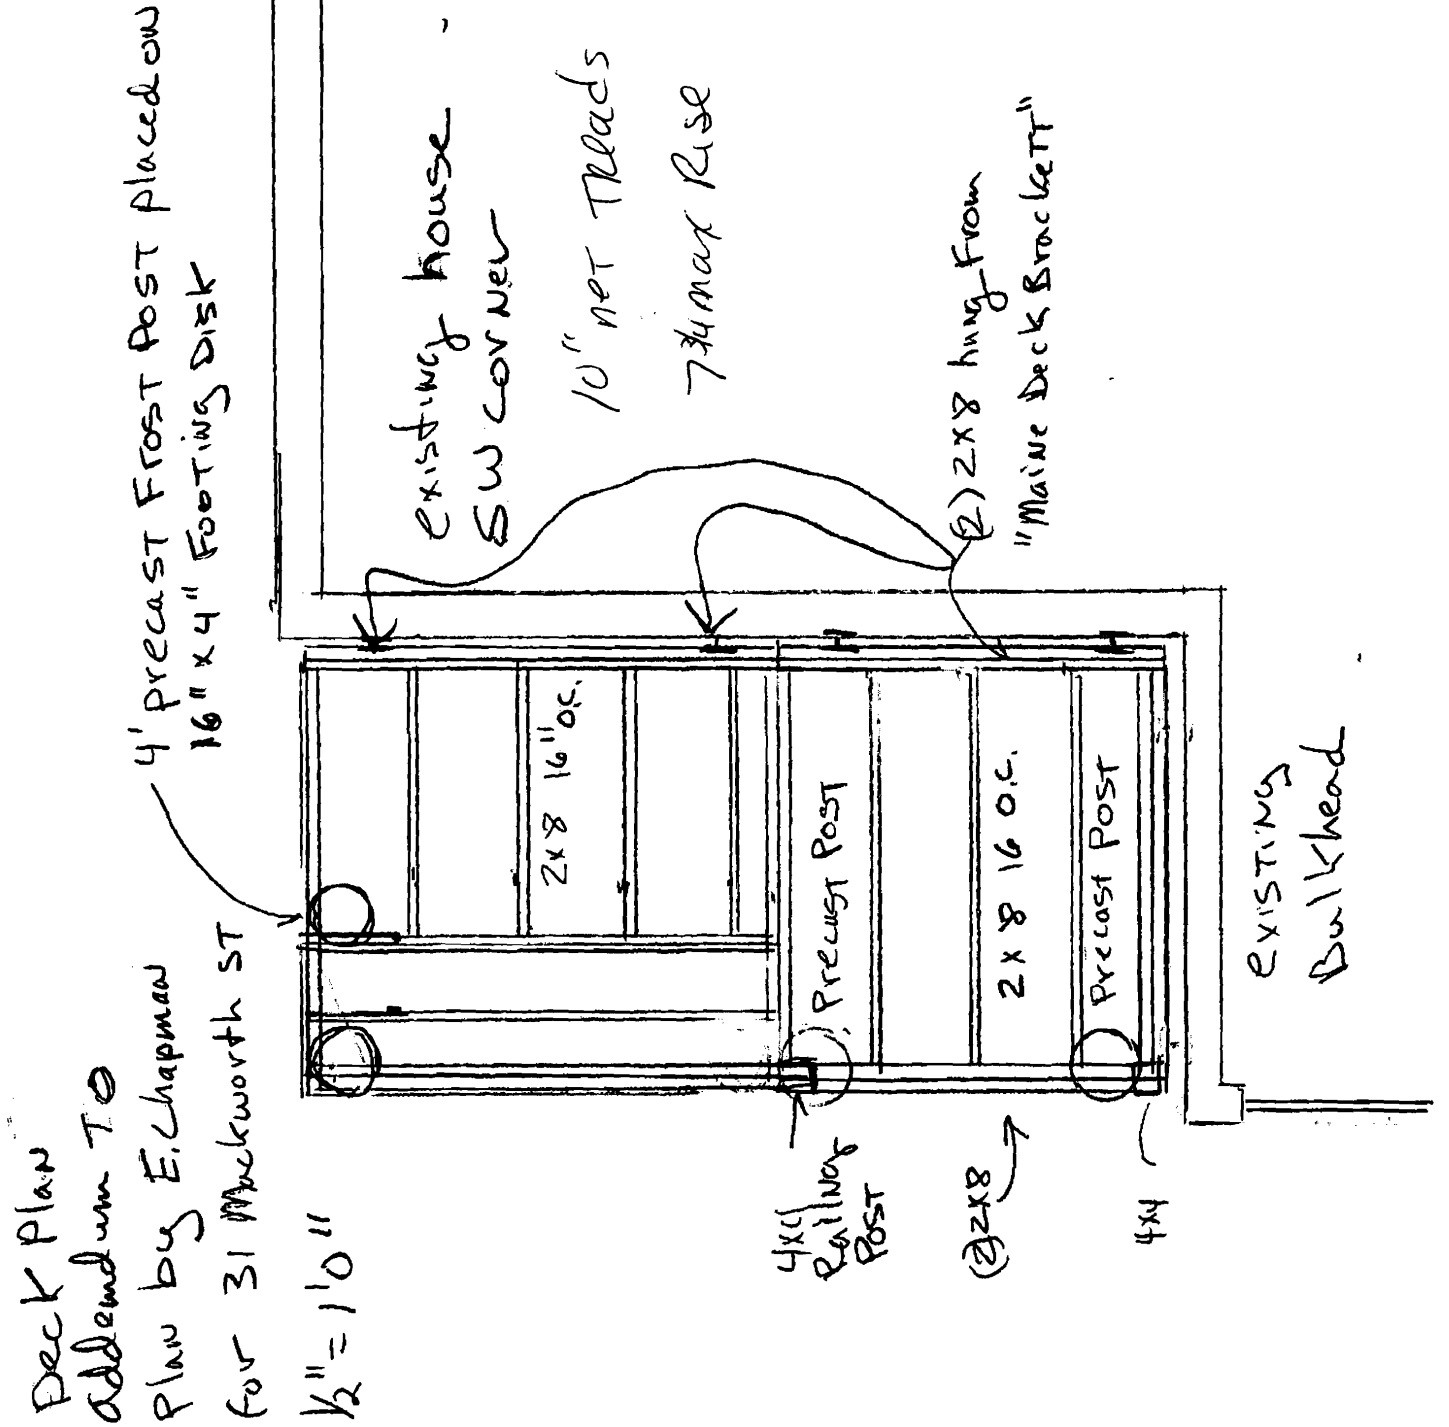 Deck Plan
addendum TO
Plan by E. Chapman
for 31 Mackworth ST
1/2" = 1'0"
4' precast Frost Post placed on
16" x 4" Footing Disk
existing house
SW corner
10" net Treads
7 3/4 max Rise
(2) 2x8 hung From
"Maine Deck Brackett"
2x8 16" o.c.
Precast Post
2x8 16 o.c.
Precast Post
4x4
Railing
Post
(2) 2x8
4x4
existing
Bulkhead